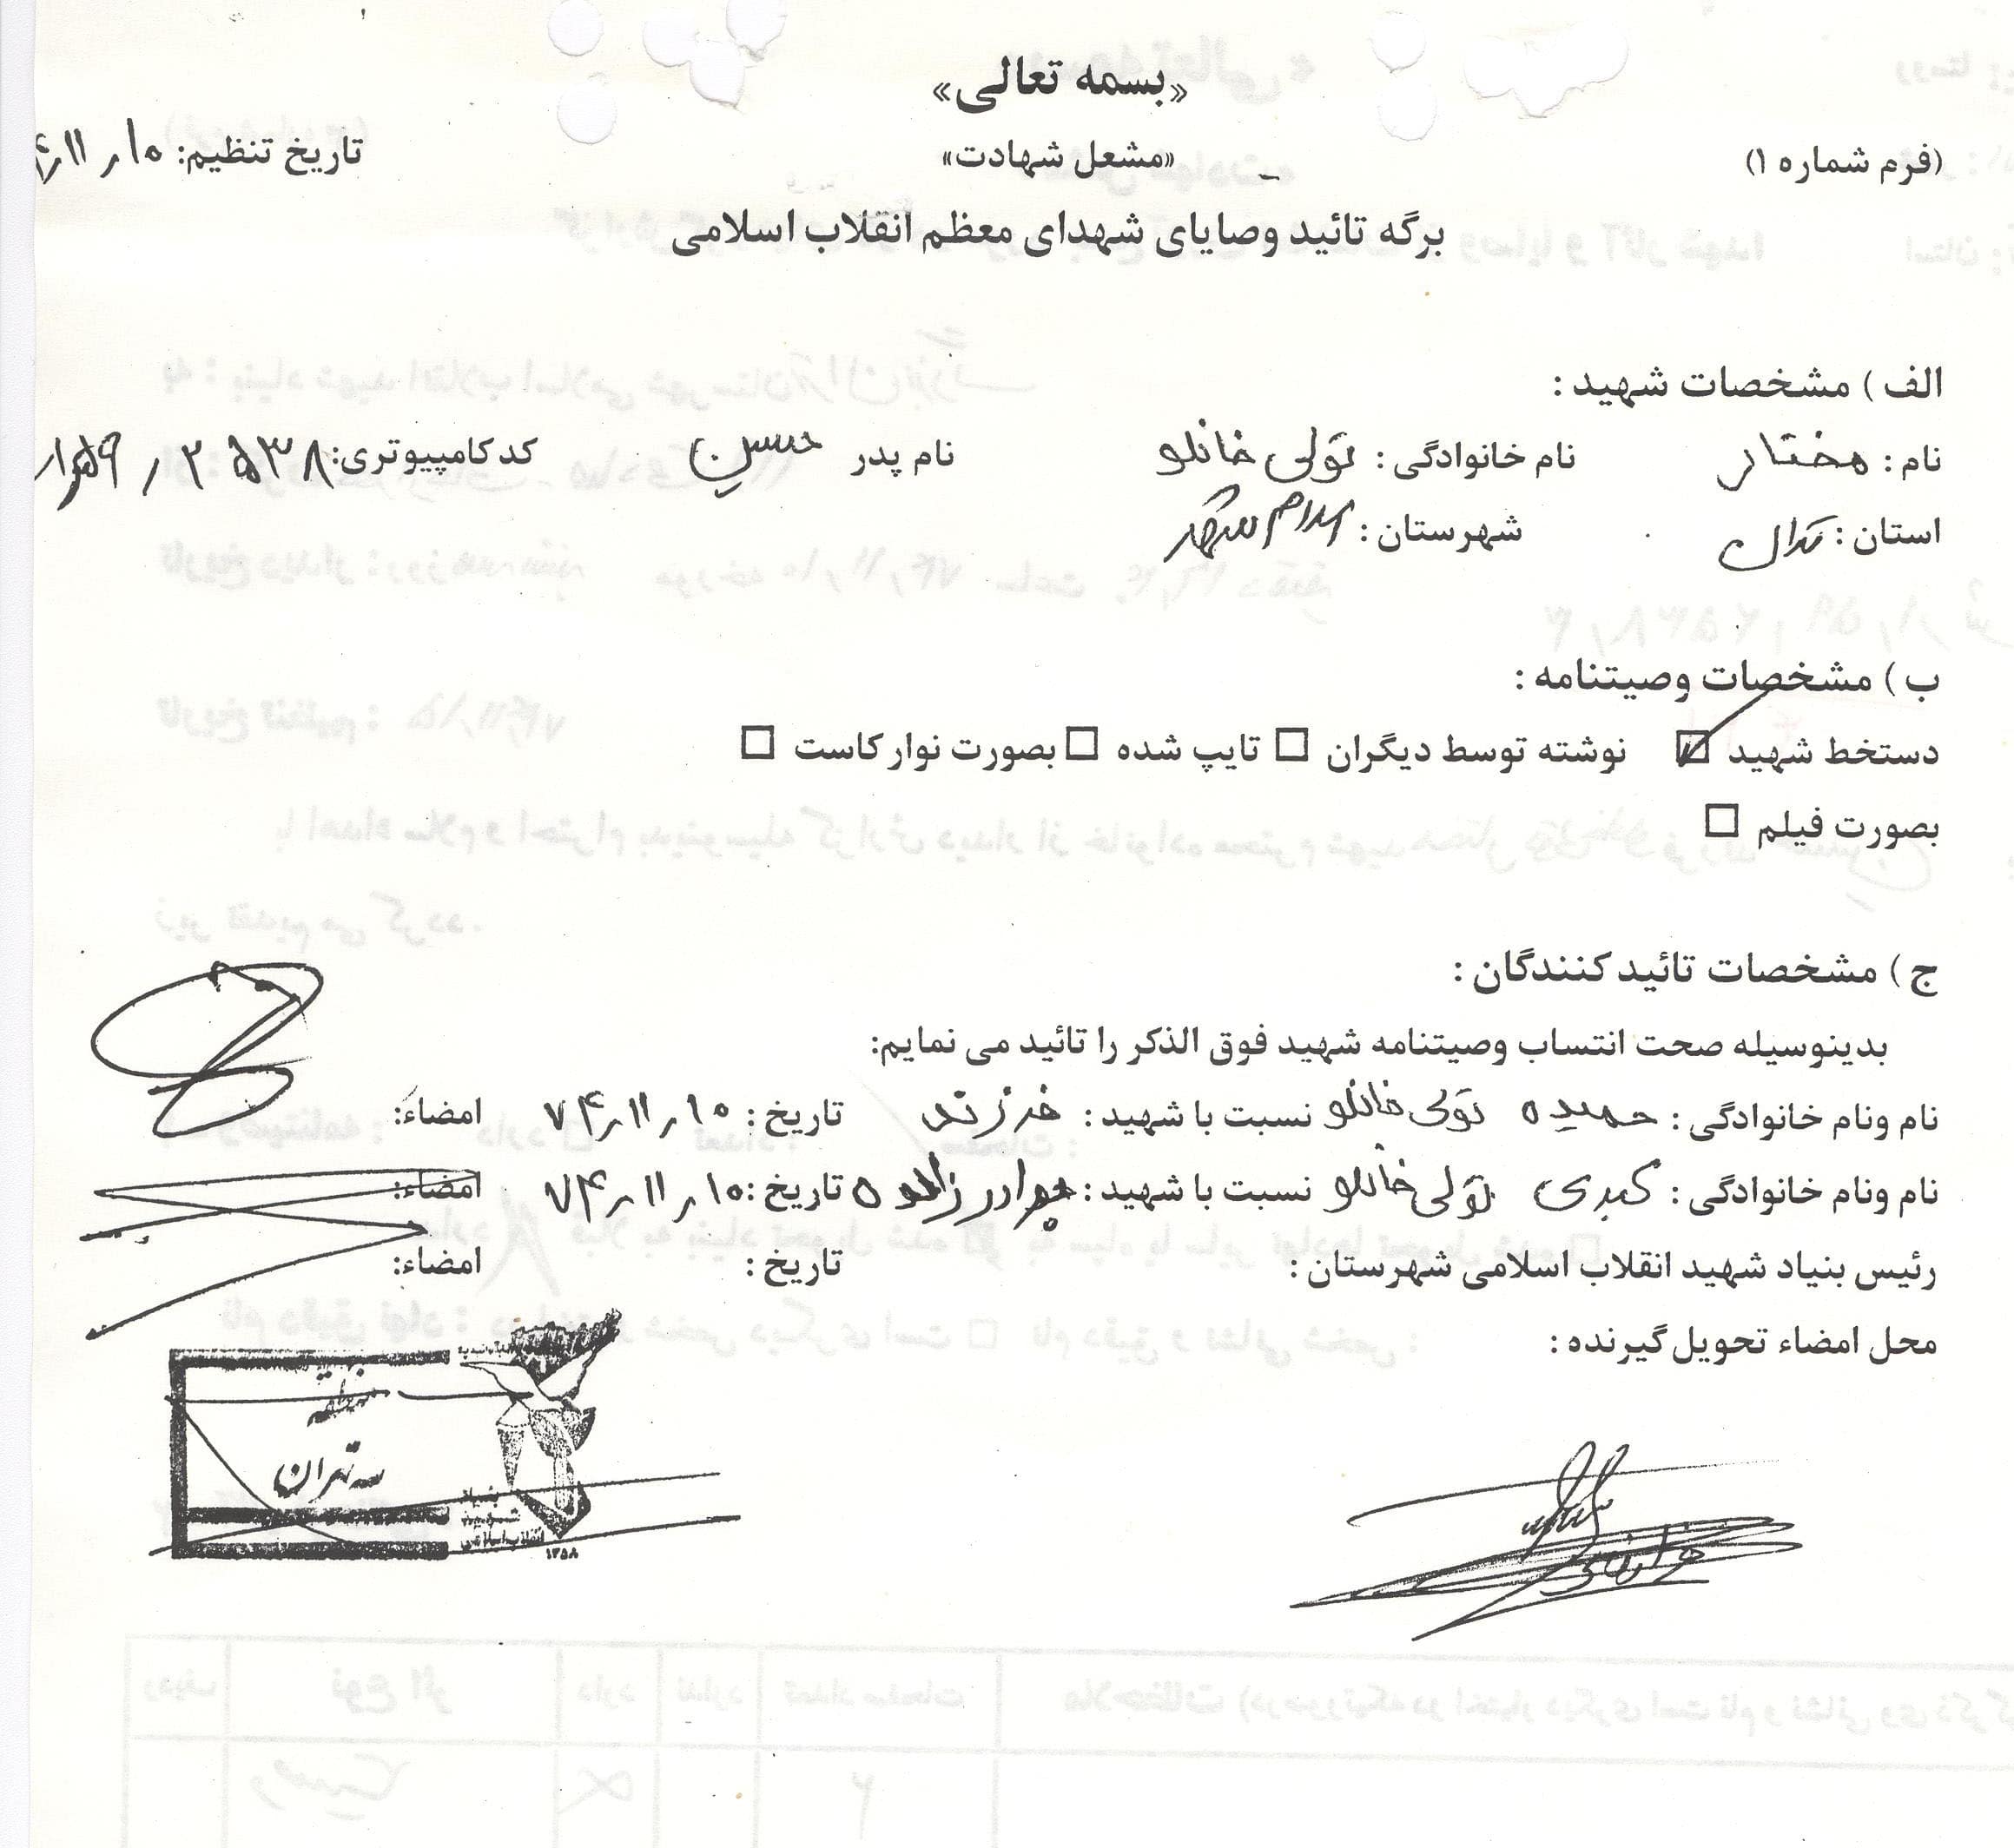 «بسمه تعالی»
(فرم شماره ۱) «مشعل شهادت» تاریخ تنظیم: ۱۰ر۱۱ر
برگه تائید وصایای شهدای معظم انقلاب اسلامی
الف ) مشخصات شهید :
نام : مختار نام خانوادگی : تولی خانلو نام پدر حسین کد کامپیوتری:
استان : تهران شهرستان : اسلام شهر
ب ) مشخصات وصیتنامه :
دستخط شهید ☑ نوشته توسط دیگران □ تایپ شده □ بصورت نوار کاست □
بصورت فیلم □
ج ) مشخصات تائید کنندگان :
بدینوسیله صحت انتساب وصیتنامه شهید فوق الذکر را تائید می نمایم:
نام ونام خانوادگی : حمیده تولی خانلو نسبت با شهید : فرزند تاریخ : ۱۰ر۱۱ر۷۴ امضاء:
نام ونام خانوادگی : کبری تولی خانلو نسبت با شهید : برادر زاده تاریخ : ۱۰ر۱۱ر۷۴ امضاء:
رئیس بنیاد شهید انقلاب اسلامی شهرستان : تاریخ : امضاء:
محل امضاء تحویل گیرنده :
منطقه
سه تهران
بنیاد
شهید
انقلاب اسلامی
۱۳۵۸